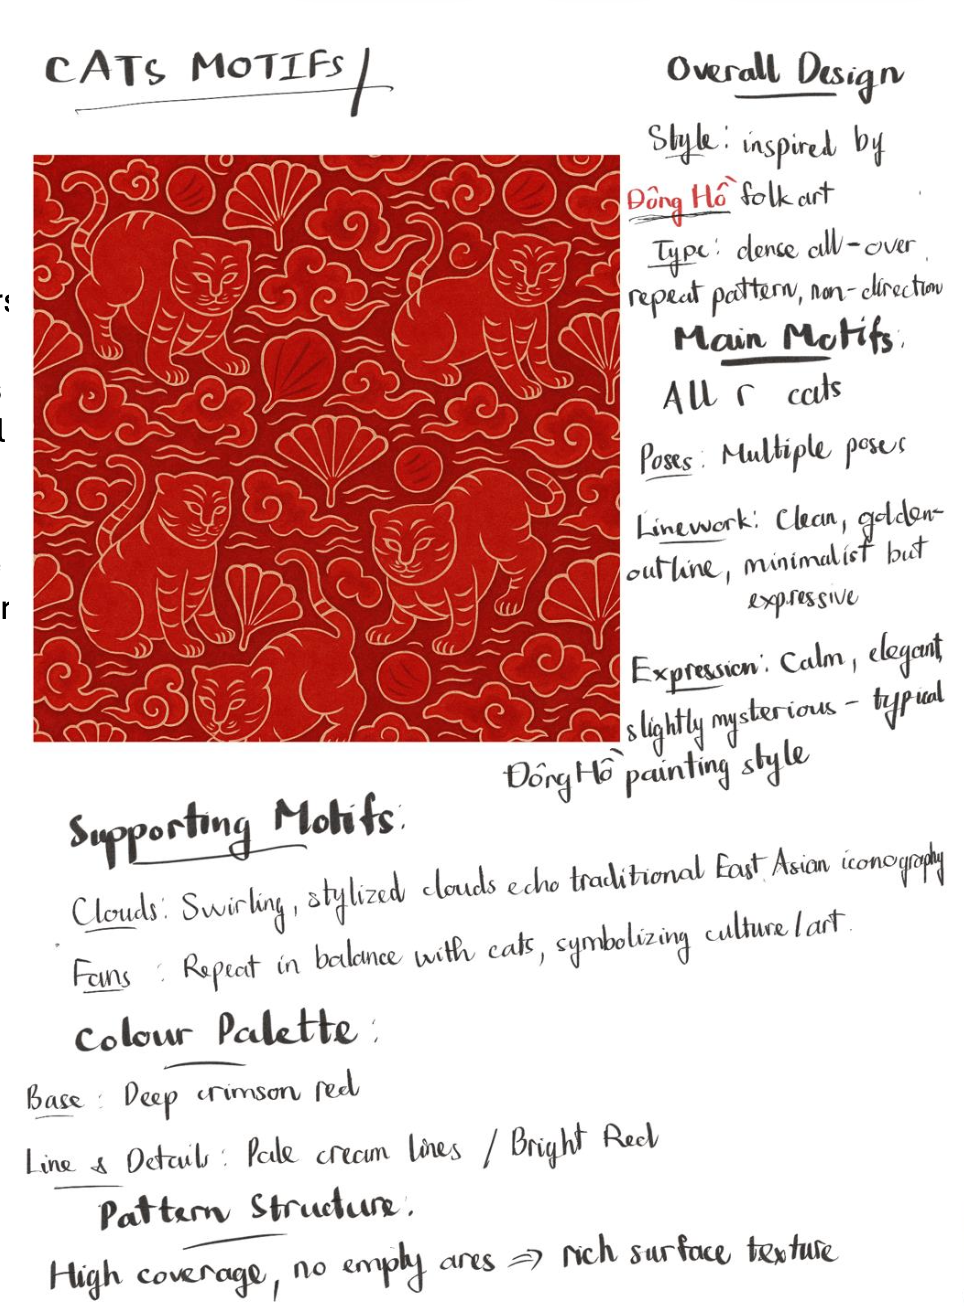 CATS MOTIFS
Overall Design
Style: inspired by
Đông Hồ folk art
Type: dense all-over
repeat pattern, non-direction
Main Motifs:
All r cats
Poses: Multiple poses
Linework: Clean, golden-
outline, minimalist but
expressive
Expression: Calm, elegant,
slightly mysterious - typical
Đông Hồ painting style
Supporting Motifs:
Clouds: Swirling, stylized clouds echo traditional East Asian iconography
Fans : Repeat in balance with cats, symbolizing culture/art.
Colour Palette:
Base : Deep crimson red
Line & Details: Pale cream lines / Bright Red
Pattern Structure:
High coverage, no empty ares ⇒ rich surface texture